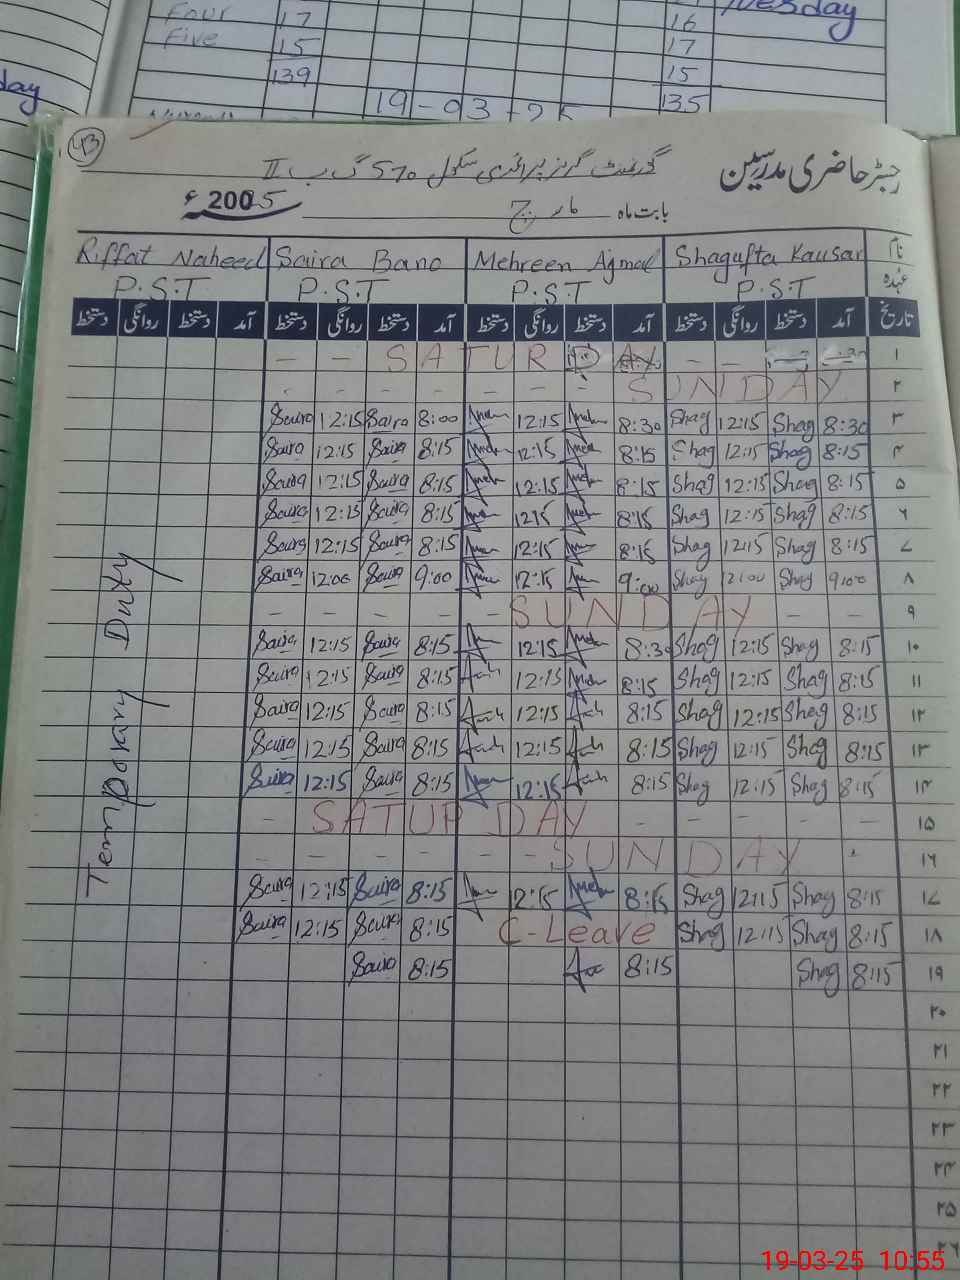 Four 17 16 Tuesday
Five 15 17
139 15
19-03-25 135
43
رجسٹر حاضری مدرسین گورنمنٹ گرلز پرائمری سکول 570 گ ب II
بابت ماہ مارچ 2005ء 25
Riffat Naheed Saira Bano Mehreen Ajmal Shagufta Kausar نام
P.S.T P.S.T P.S.T P.S.T عہدہ
دستخط روانگی دستخط آمد دستخط روانگی دستخط آمد دستخط روانگی دستخط آمد دستخط روانگی دستخط آمد تاریخ
- - SATURDAY - - ۱
- - - - - - SUNDAY ۲
Saira 12:15 Saira 8:00 12:15 8:30 Shag 12:15 Shag 8:30 ۳
Saira 12:15 Saira 8:15 12:15 8:15 Shag 12:15 Shag 8:15 ۴
Saira 12:15 Saira 8:15 12:15 8:15 Shag 12:15 Shag 8:15 ۵
Saira 12:15 Saira 8:15 12:15 8:15 Shag 12:15 Shag 8:15 ۶
Saira 12:15 Saira 8:15 12:15 8:15 Shag 12:15 Shag 8:15 ۷
Saira 12:00 Saira 9:00 12:15 9:00 Shag 12:00 Shag 9:00 ۸
- - - - - SUNDAY - - ۹
Saira 12:15 Saira 8:15 12:15 8:30 Shag 12:15 Shag 8:15 ۱۰
Saira 12:15 Saira 8:15 12:15 8:15 Shag 12:15 Shag 8:15 ۱۱
Saira 12:15 Saira 8:15 12:15 8:15 Shag 12:15 Shag 8:15 ۱۲
Saira 12:15 Saira 8:15 12:15 8:15 Shag 12:15 Shag 8:15 ۱۳
Saira 12:15 Saira 8:15 12:15 8:15 Shag 12:15 Shag 8:15 ۱۴
- SATURDAY - - - - - ۱۵
- - - - - - SUNDAY ۱۶
Saira 12:15 Saira 8:15 12:15 8:15 Shag 12:15 Shag 8:15 ۱۷
Saira 12:15 Saira 8:15 C-Leave Shag 12:15 Shag 8:15 ۱۸
Saira 8:15 8:15 Shag 8:15 ۱۹
Temporary Duty
۲۰
۲۱
۲۲
۲۳
۲۴
۲۵
۲۶
19-03-25 10:55